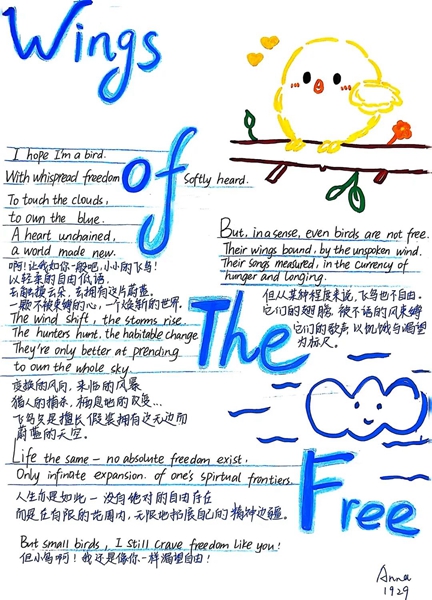 Wings
of
The
Free
I hope I'm a bird.
With whispread freedom softly heard.
To touch the clouds,
to own the blue.
A heart unchained,
a world made new.
啊！让我如你一般吧，小小的飞鸟！
以轻柔的自由低语，
去触摸云朵，去拥有这片蔚蓝。
一颗不被束缚的心，一个焕新的世界。
The wind shift, the storms rise.
The hunters hunt, the habitable change.
They're only better at prending
to own the whole sky.
变换的风向，来临的风暴
猎人的捕杀，栖息地的改变…
飞鸟只是擅长假装拥有这无边而
蔚蓝的天空。
But, in a sense, even birds are not free.
Their wings bound, by the unspoken wind.
Their songs measured, in the currency of
hunger and longing.
但从某种程度来说，飞鸟也不自由。
它们的翅膀，被不语的风束缚
它们的歌声以饥饿与渴望
为标尺。
Life the same — no absolute freedom exist,
Only infinate expansion of one's spirtual frontiers.
人生亦是如此 — 没有绝对的自由存在
而是在有限的范围内，无限地拓展自己的精神边疆。
But small birds, I still crave freedom like you!
但小鸟啊！我还是像你一样渴望自由！
Anna
1929